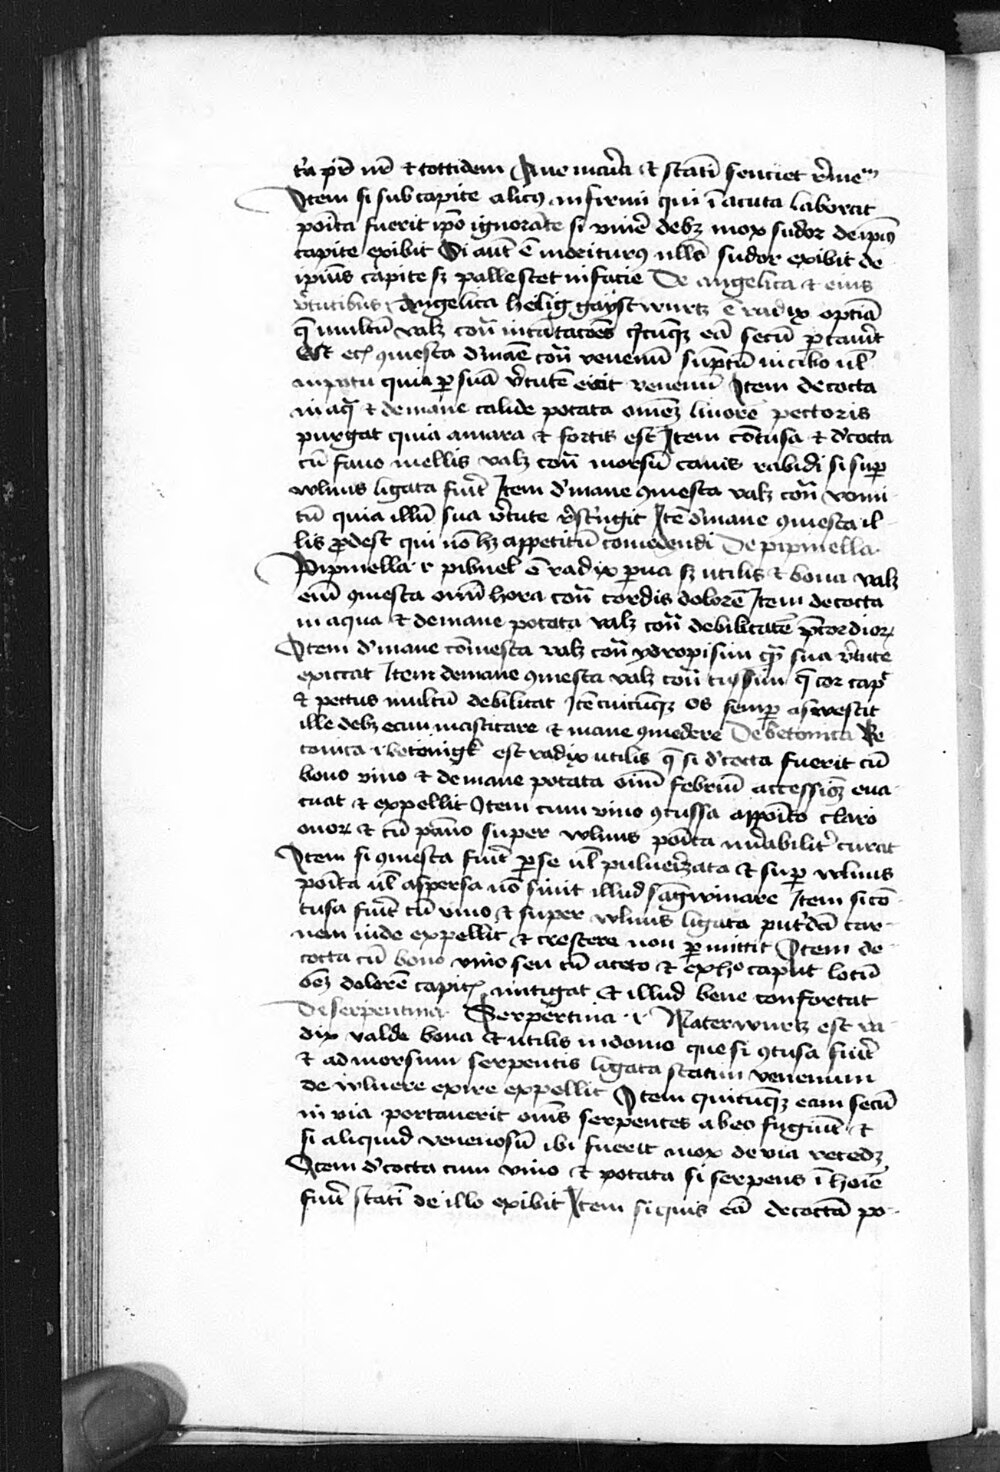 t'a pr̄ nr̄ et tottidem Aue mar̄ia et statī senciet r̄me
Item si sub capite alicuꝰ infirmi qui ī acuta laborat
poīta fuerit ip̄o ignorāte si viuēe debꝫ mox sudor de ipīꝰ
capite exibit Si aūt ē moriturꝰ nullꝰ sudor exibit de
ipiꝰs capite sꝫ pallescet in facie De angelica et eius
v̄tutibus Angelica heilig gayst wurtz ē radix optīa
q̄ multū valꝫ cont̄ incātacōēs q̄cūqꝫ eā secū ꝑtau̅it
Est ecꝫ ꝯmesta d'mane cont̄ venenū sūptū in cibo ul̄
in potu quia ꝑ suā v̄tutē eicit venenū Item decocta
in aq̄ et de mane calide potata omēꝫ liuorē pectoris
purgat quia amara et fortis est Item cōtusa et d'cocta
cū fauo mellis valꝫ cont̄ morsū canis rabidi si suꝑ
wlnus ligata fuit̄ Item d'mane ꝯmesta valꝫ cont̄ vomi-
tū quia illū sua v̄tute rest̄ngit Itē d'mane ꝯmesta il-
lis ꝓdest qui nō hꝫ appetitū comedendi De pipinella
Pipinella r pibnel ē radix parua sꝫ utilis et bona valꝫ
enī ꝯmesta omī hora cont̄ cordis dolorē Item decocta
in aqua et de mane potata valꝫ cont̄ debilitatē p̄cordioꝝ
Item d'mane cōmesta valꝫ cont̄ ydropisim quā sua v̄tute
exiccat Item de mane ꝯmesta valꝫ cont̄ tussim q̄ cor caput
et pectus multū debilitat Itē cuicūqꝫ os semꝑ
ille debꝫ eam masticare et mane ꝯmedere De betonica Be
tonica r betonigk est radix utilis q̄ si d'cocta fuerit cū
bono vino et de mane potata oīm febriū accessiōꝫ eua-
cuat et expellit Item cum vino ꝯtussa apposito claro
ouoꝝ et cū pāno super wlnus poīta mirabilit̄ curat
Item si ꝯmesta fuit̄ ꝑ se ul̄ puluerizata et suꝑ wlnus
poīta ul̄ aspersa nō sinit illud sangwinare Item si cō-
tusa fuit̄ cū vino et super wlnus ligata putridā car-
nem inde expellit et crescere non ꝑmittit Item de-
cocta cū bono vino seu cū aceto et ex hꝰ caput lotū
oēꝫ dolorē capitꝭ mitigat et illud bene confortat
De serpentina Serpentina r Naterwurtz est ra-
dix valde bona et utilis in domo que si ꝯtusa fuit̄
et ad morsum serpentis ligata statim venenum
de wlnere exire expellit Item quicūqꝫ eam secū
in via portauerit omēs serpentes ab eo fugiūt et
si aliquid venenosū ibi fuerit mox de via recedꝫ
Item d'cocta cum vino et potata si serpens ī hoīe
fuit̄ statī de illo exibit Item si quis eā decoctā po-